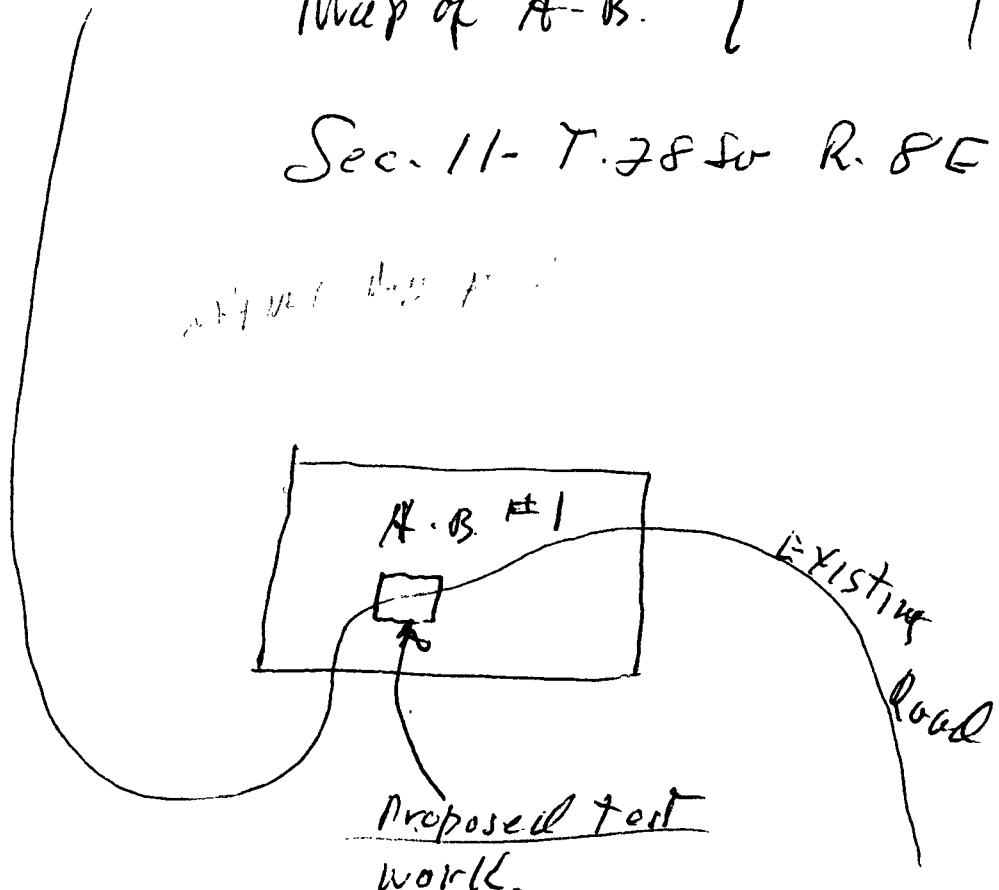 Map of A-B.
Sec. 11- T. 28 So R. 8 E
A.B. #1
Existing
Road
Proposed test
work.